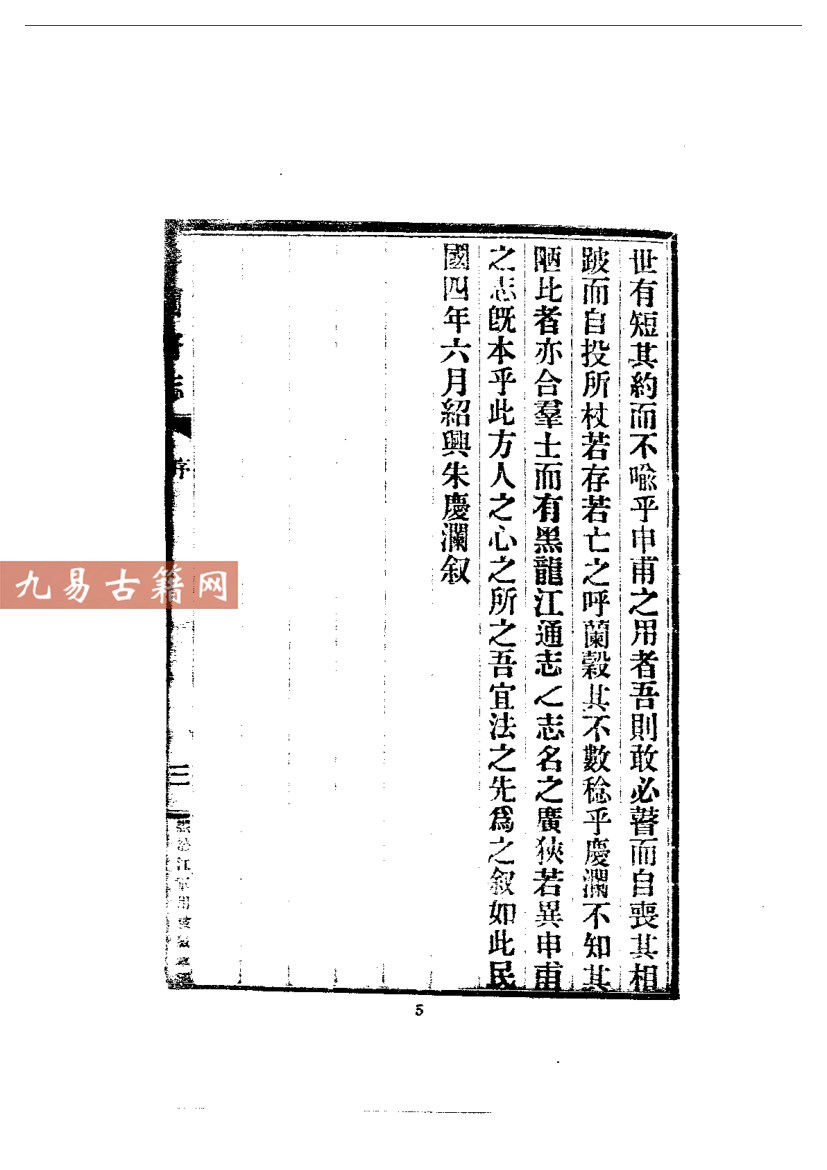 世有短其約而不喩乎申甫之用者吾則敢必瞽而自喪其相
跛而自投所杖若存若亡之呼蘭穀其不數稔乎慶瀾不知其
陋比者亦合羣士而有黑龍江通志之志名之廣狹若異申甫
之志旣本乎此方人之心之所之吾宜法之先爲之叙如此民
國四年六月紹興朱慶瀾叙
序
三
九易古籍网
5